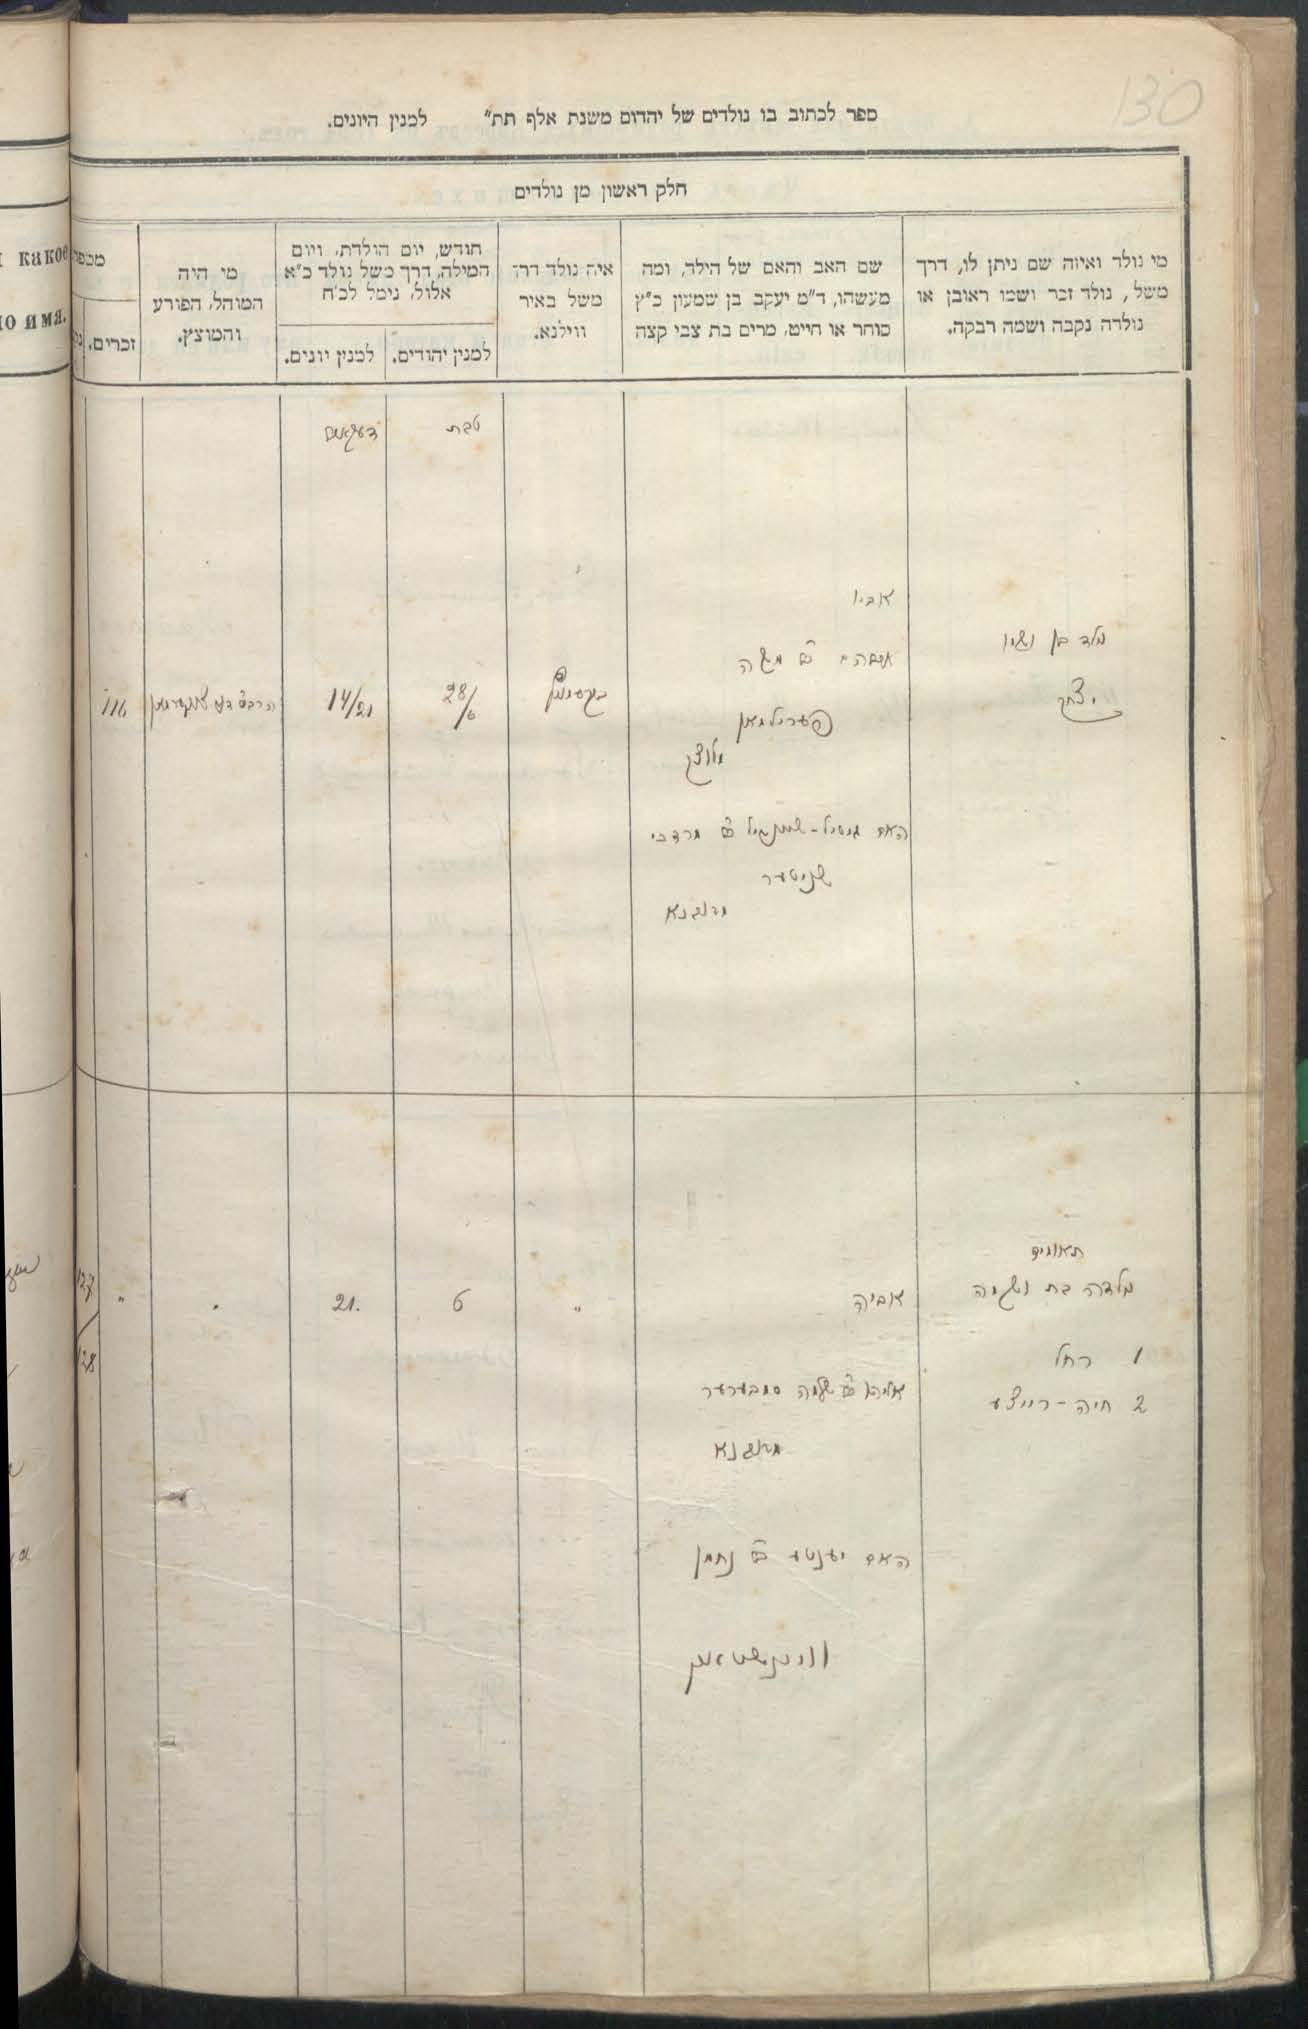 130
ספר לכתוב בו נולדים של יהדום משנת אלף תת״ למנין היונים.
חלק ראשון מן נולדים
מי נולד ואיזה שם ניתן לו, דרך
משל, נולד זכר ושמו ראובן או
נולדה נקבה ושמה רבקה.
שם האב והאם של הילד, ומה
מעשהו, ד״מ יעקב בן שמעון כ״ץ
סוחר או חייט, מרים בת צבי קצה
איה נולד דרך
משל באיר
ווילנא.
חודש, יום הולדת, ויום
המילה, דרך משל נולד כ״א
אלול, נימל לכ״ח
למנין יהודים.
למנין יונים.
מי היה
המוהל, הפורע
והמוצץ.
מספר
זכרים.
какое
имя.
טבת
אביו
נולד בן ושמו
יצחק
משה
פערילמאן
מלוצק
28/6
14/21
116
האם מרדכי
שניטער
מראוונא
תאומים
נולדה בת ושמה
1 רחל
2 חיה-רייצע
אביה
שלמה
מראוונא
האם יענטע נחמן
וויינשטאק
"
6
21.
"
"
127
128